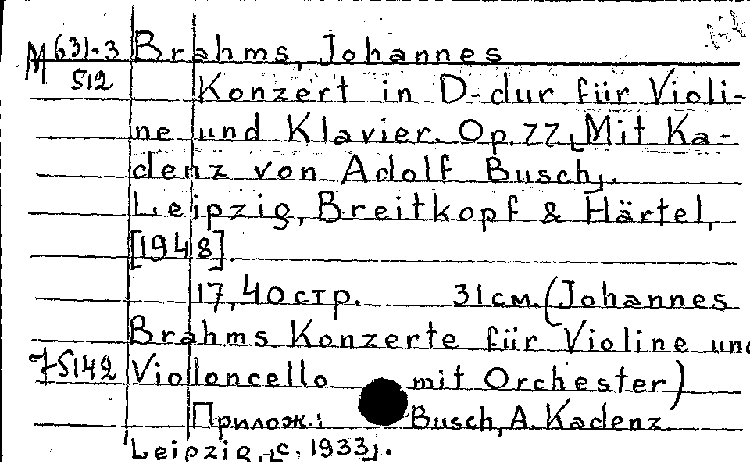 M(63)-3 Brahms, Johannes
512 Konzert in D-dur für Violi-
ne und Klavier. Op. 77 [Mit Ka-
denz von Adolf Busch].
Leipzig, Breitkopf & Härtel,
[1948].
17, 40 стр. 31 см. (Johannes
Brahms Konzerte für Violine und
75142 Violoncello mit Orchester)
Прилож.: Busch, A. Kadenz
Leipzig, [c. 1933].